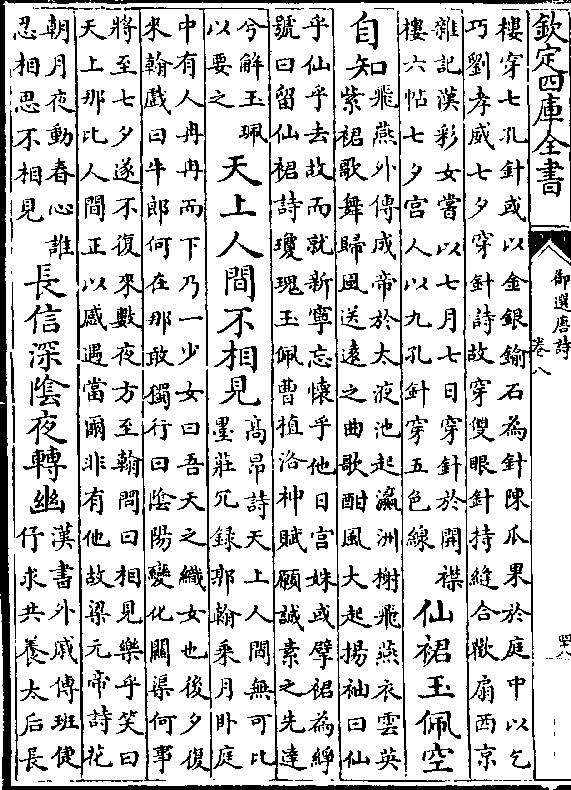 欽定四庫全書
御選唐詩
卷八
四十八
樓穿七孔針或以金銀鍮石為針陳瓜果於庭中以乞
巧劉孝威七夕穿針詩故穿雙眼針持縫合歡扇西京
雜記漢彩女嘗以七月七日穿針於開襟
樓六帖七夕宫人以九孔針穿五色線
仙裙玉佩空
自知
飛燕外傳成帝於太液池起瀛洲榭飛燕衣雲英
紫裙歌舞歸風送遠之曲歌酣風大起揚袖曰仙
乎仙乎去故而就新寧忘懷乎他日宫姝或襞裙為縐
號曰留仙裙詩瓊瑰玉佩曹植洛神賦願誠素之先達
兮解玉珮
以要之
天上人間不相見
高昂詩天上人間無可比
墨莊冗録郭翰乘月卧庭
中有人冉冉而下乃一少女曰吾天之織女也後夕復
來翰戲曰牛郎何在那敢獨行曰陰陽變化關渠何事
將至七夕遂不復來數夜方至翰問曰相見樂乎笑曰
天上那比人間正以感遇當爾非有他故梁元帝詩花
朝月夜動春心誰
忍相思不相見
長信深陰夜轉幽
漢書外戚傳班倢
伃求共養太后長